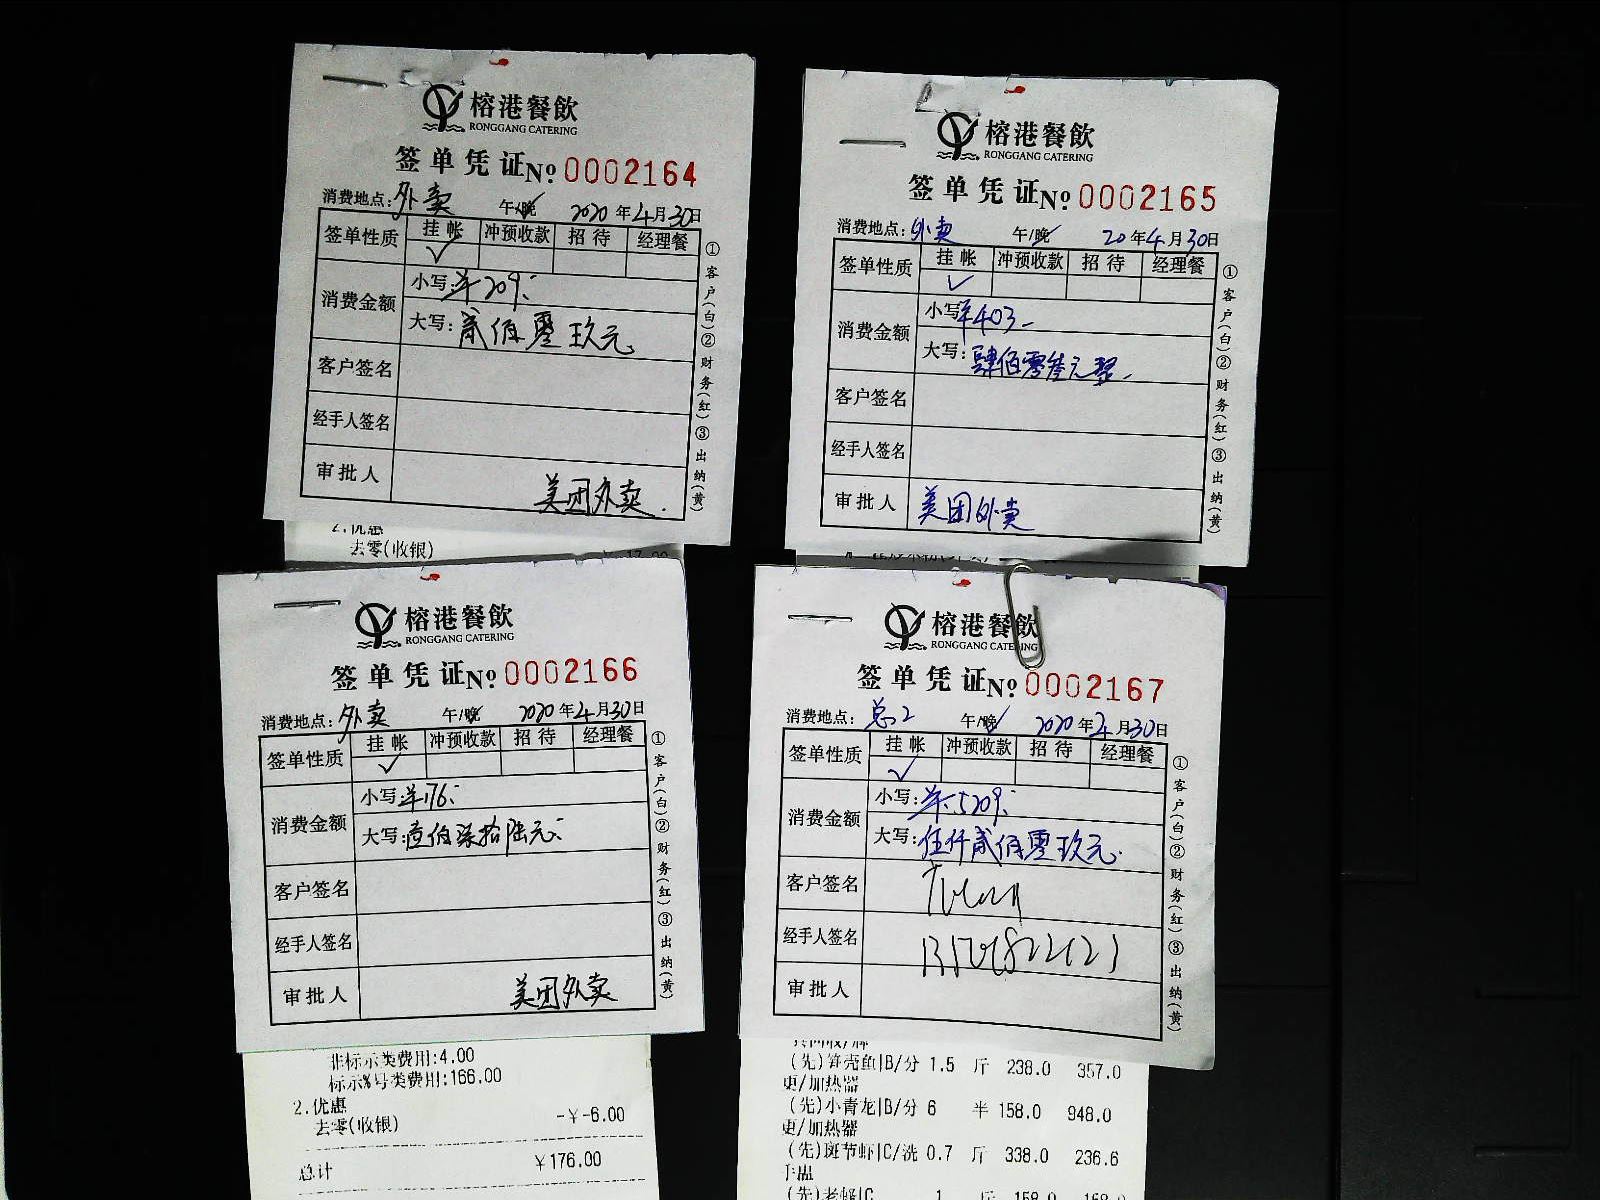 榕港餐飲
RONGGANG CATERING
签单凭证 No 0002164
消费地点: 外卖 午/晚 2020年4月30日
签单性质 挂帐 冲预收款 招待 经理餐
✓
消费金额 小写: ¥209.
大写: 贰佰零玖元
客户签名
经手人签名
审批人 美团外卖.
①客户(白)②财务(红)③出纳(黄)
2.优惠
去零(收银)
榕港餐飲
RONGGANG CATERING
签单凭证 No 0002165
消费地点: 外卖 午/晚 20年4月30日
签单性质 挂帐 冲预收款 招待 经理餐
✓
消费金额 小写 ¥403-
大写: 肆佰零叁元整
客户签名
经手人签名
审批人 美团外卖
①客户(白)②财务(红)③出纳(黄)
榕港餐飲
RONGGANG CATERING
签单凭证 No 0002166
消费地点: 外卖 午/晚 2020年4月30日
签单性质 挂帐 冲预收款 招待 经理餐
✓
消费金额 小写: ¥176.
大写: 壹佰柒拾陆元
客户签名
经手人签名
审批人 美团外卖
①客户(白)②财务(红)③出纳(黄)
非标示类费用:4.00
标示%号类费用:166.00
2.优惠
去零(收银) -¥-6.00
总计 ¥176.00
榕港餐飲
RONGGANG CATERING
签单凭证 No 0002167
消费地点: 总2 午/晚 2020年4月30日
签单性质 挂帐 冲预收款 招待 经理餐
✓
消费金额 小写: ¥5209.
大写: 伍仟贰佰零玖元.
客户签名
经手人签名
审批人
①客户(白)②财务(红)③出纳(黄)
(先)笋壳鱼|B/分 1.5 斤 238.0 357.0
更/加热器
(先)小青龙|B/分 6 半 158.0 948.0
更/加热器
(先)斑节虾|C/洗 0.7 斤 338.0 236.6
手盅